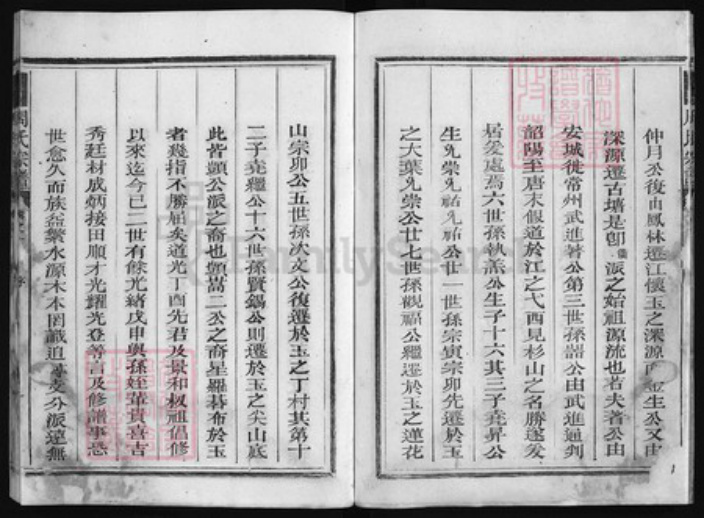 仲月公復由鳳林遷江懷玉之深源而金生公又由
深源遷古墻是卽派之始祖源流也若夫著公由
安城徙常州武進著公第三世孫韶公由武進通判
韶陽至唐末假道於江之弋西見杉山之名勝遂爰
居爰處焉六世孫執羔公生子十六其三子堯昇公
生允崇允祐允祐公廿一世孫宗寅宗卯先遷於玉
之大葉允崇公廿七世孫觀福公繼遷於玉之蓮花
山宗卯公五世孫次文公復遷於玉之丁村其第十
二子堯繼公十六世孫賢錫公則遷於玉之尖山底
此皆顗公派之裔也顗嵩二公之裔星羅碁布於玉
者幾指不勝屈矣道光丁酉先君及景和叔祖倡修
以來迄今已二世有餘光緒戊申與孫姪輩貴喜吉
秀廷材成炳接田順才光耀光登等言及修譜事恐
世愈久而族益繁水源木本罔識追分派遠無
周氏宗譜